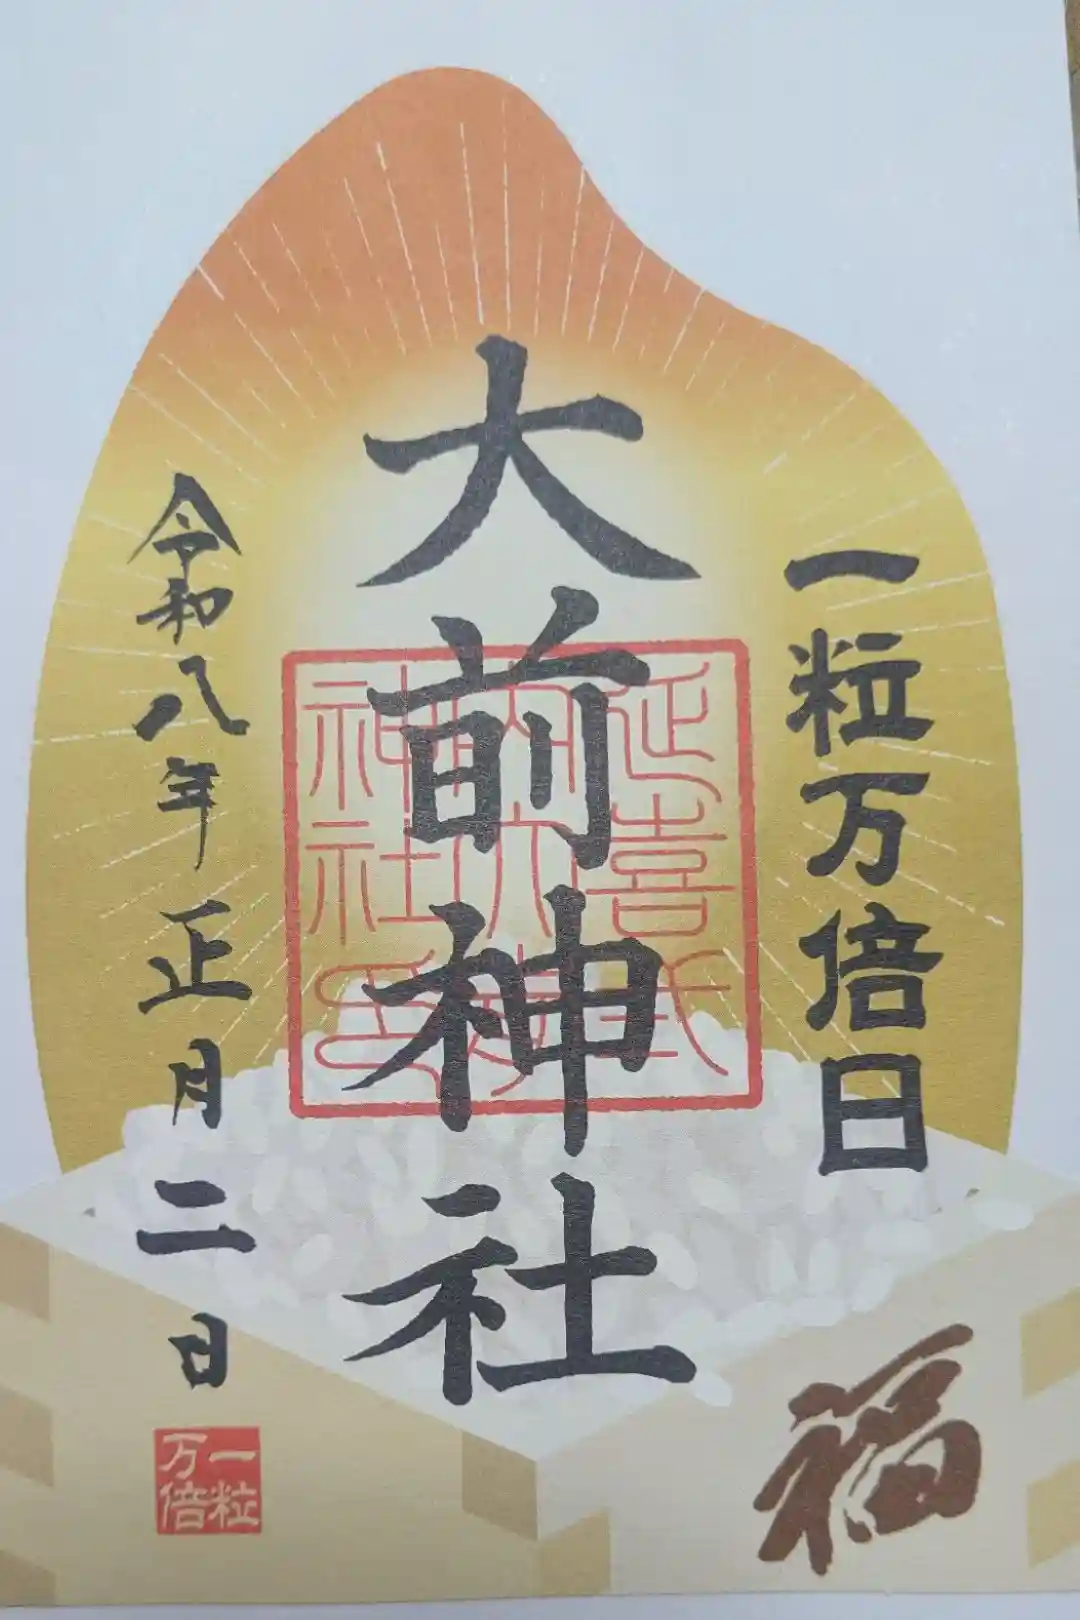 一粒万倍日
大前神社
延喜式
内大前
神社印
令和八年正月二日
一粒
万倍
福